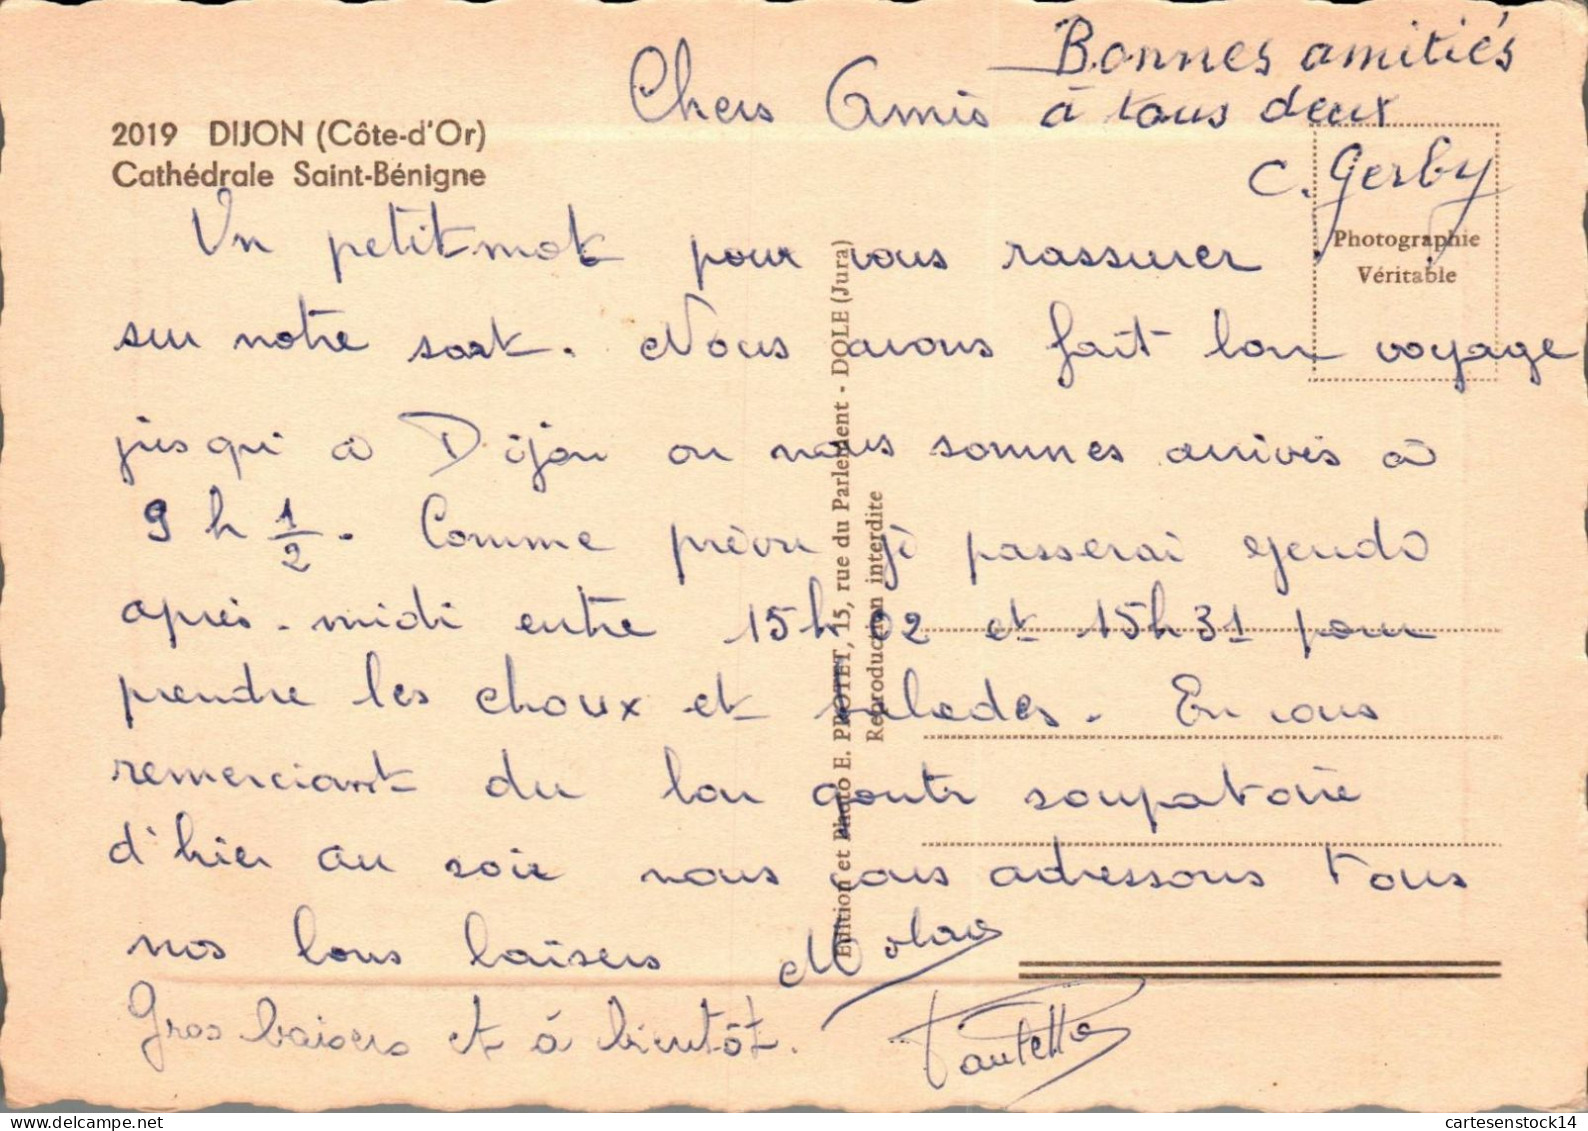 Bonnes amitiés
Chers Amis à tous deux
C. Gerby
2019 DIJON (Côte-d'Or)
Cathédrale Saint-Bénigne
Photographie
Véritable
Un petit mot pour vous rassurer
sur notre sort. Nous avons fait bon voyage
jusqu'à Dijon ou nous sommes arrivés à
9 h 1/2. Comme prévu je passerai jeudi
après-midi entre 15h02 et 15h31 pour
prendre les choux et salades. En vous
remerciant du bon
d'hier au soir nous vous adressons tous
nos bons baisers
Gros baisers et à bientôt.
Paulette
Edition et Photo E. PROTET, 15, rue du Parlement - DOLE (Jura)
Reproduction interdite
cartesenstock14